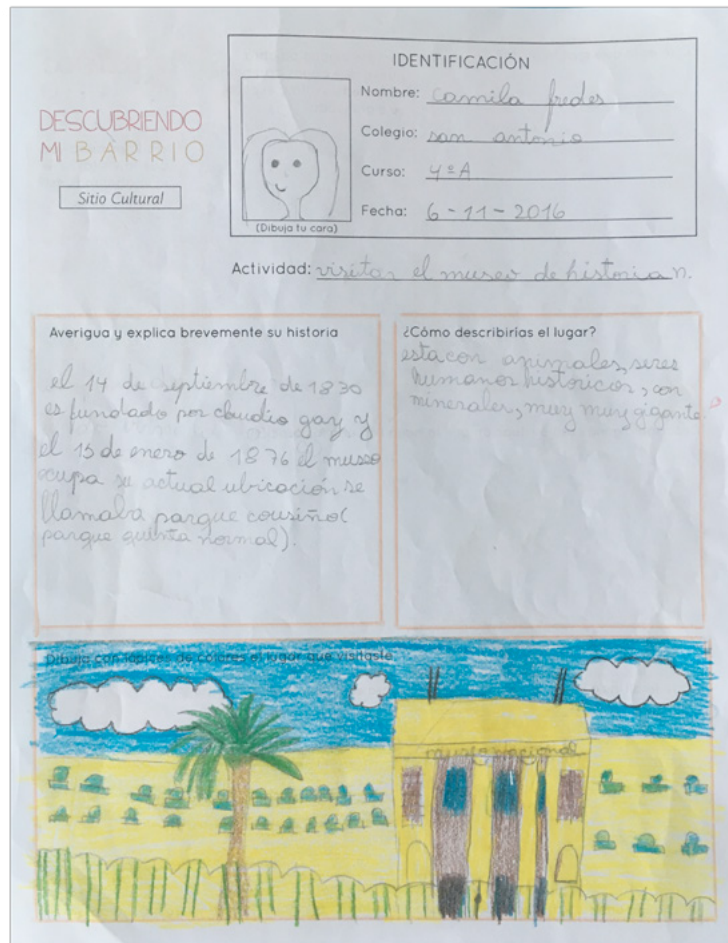 DESCUBRIENDO
MI BARRIO
Sitio Cultural
IDENTIFICACIÓN
Nombre: camila fredes
Colegio: san antonio
Curso: 4ºA
Fecha: 6-11-2016
(Dibuja tu cara)
Actividad: visitar el museo de historia n.
Averigua y explica brevemente su historia
el 14 de septiembre de 1830
es fundado por claudio gay y
el 15 de enero de 1876 el museo
ocupa su actual ubicación se
llamaba parque cousiño(
parque quinta normal).
¿Cómo describirías el lugar?
esta con animales, seres
humanos historicos, con
minerales, muy muy gigante.
Dibuja con lápices de colores el lugar que visitaste
museo nacional